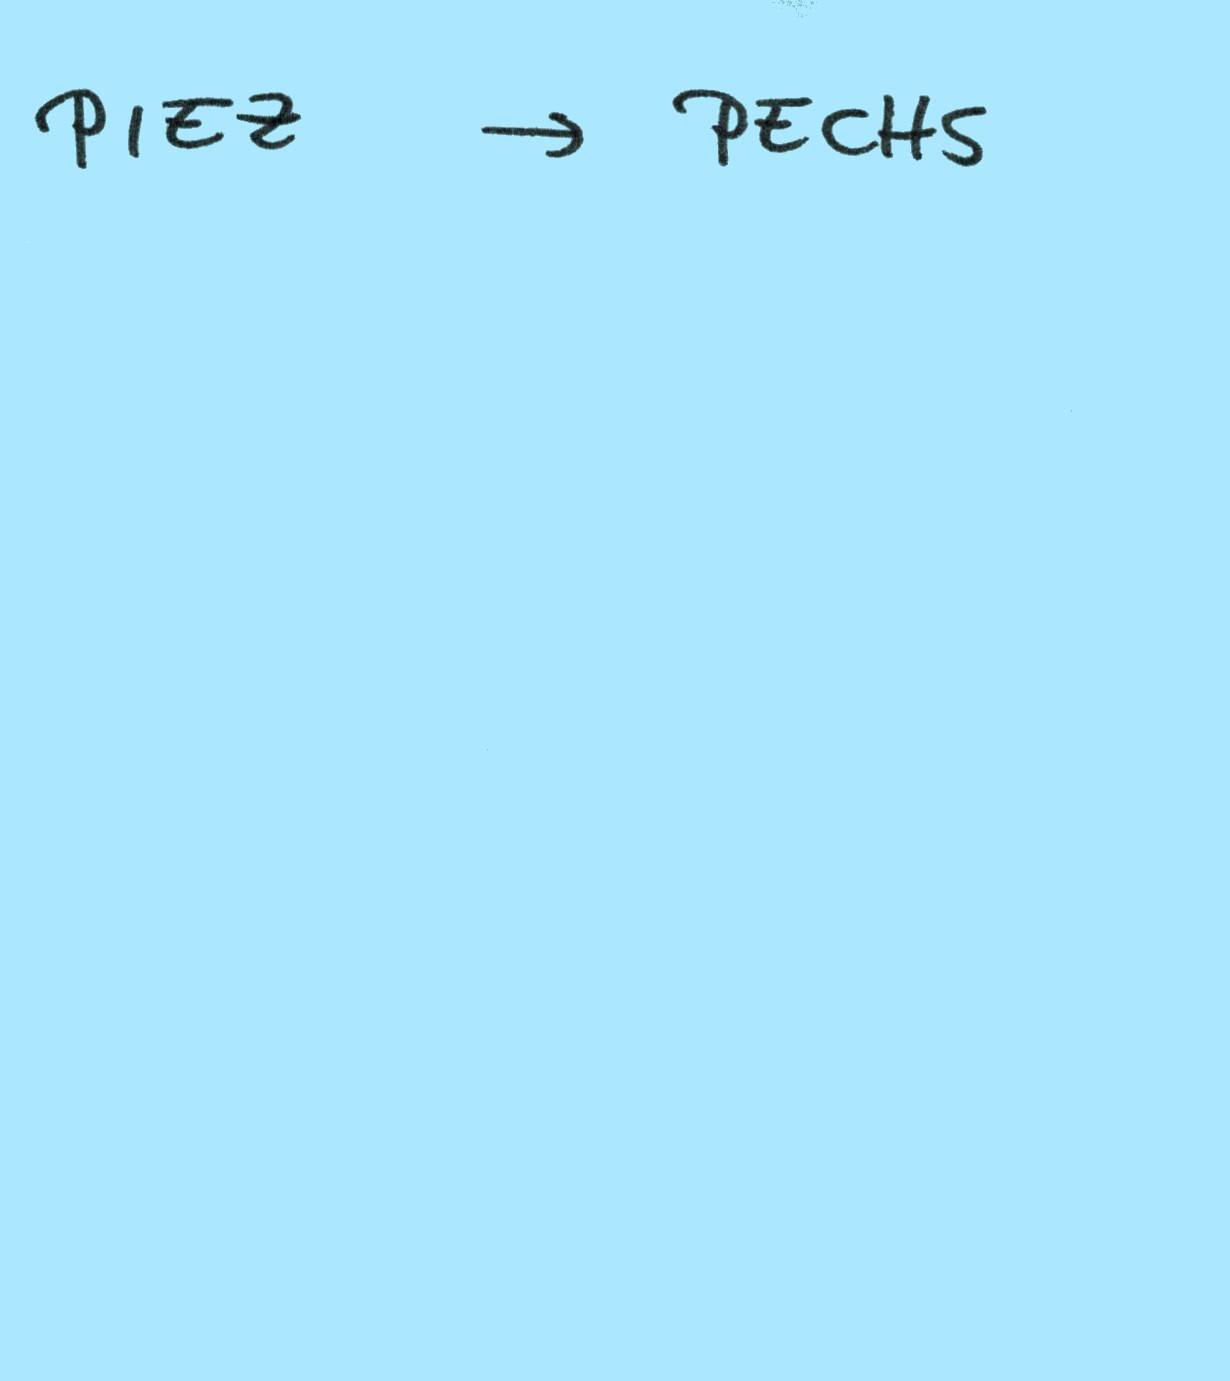 PIEZ → PECHS